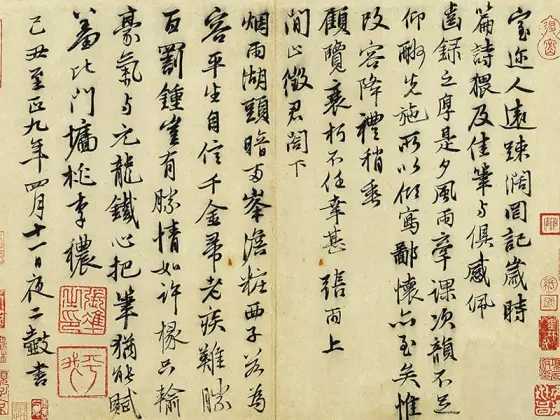 室迩人遠踈闊罔記歲時
篇詩猥及佳筆与俱感佩
齒録之厚是夕風雨牽課次韻不足
仰酬先施所以傾寫鄙懷亦至矣惟
改容降禮稍垂
顧覽衰朽不任幸甚 張雨上
閒止徵君閤下
烟雨湖頭暗两峯澹粧西子若爲
容平生自信千金帚老疾難勝
百罰鍾豈有勝情如許掾只輸
豪氣与元龍鐵心把筆猶能賦
羞比門墻桃李穠
己丑至正九年四月十一日夜二皷書